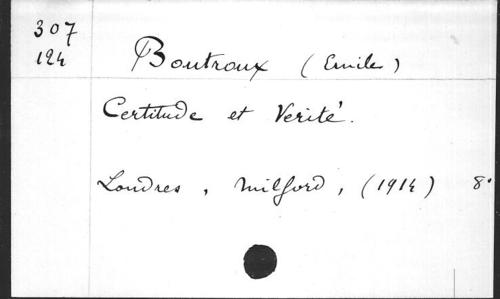 307
124
Boutroux (Emile)
Certitude et Verité.
Londres, Milford, (1914) 8°